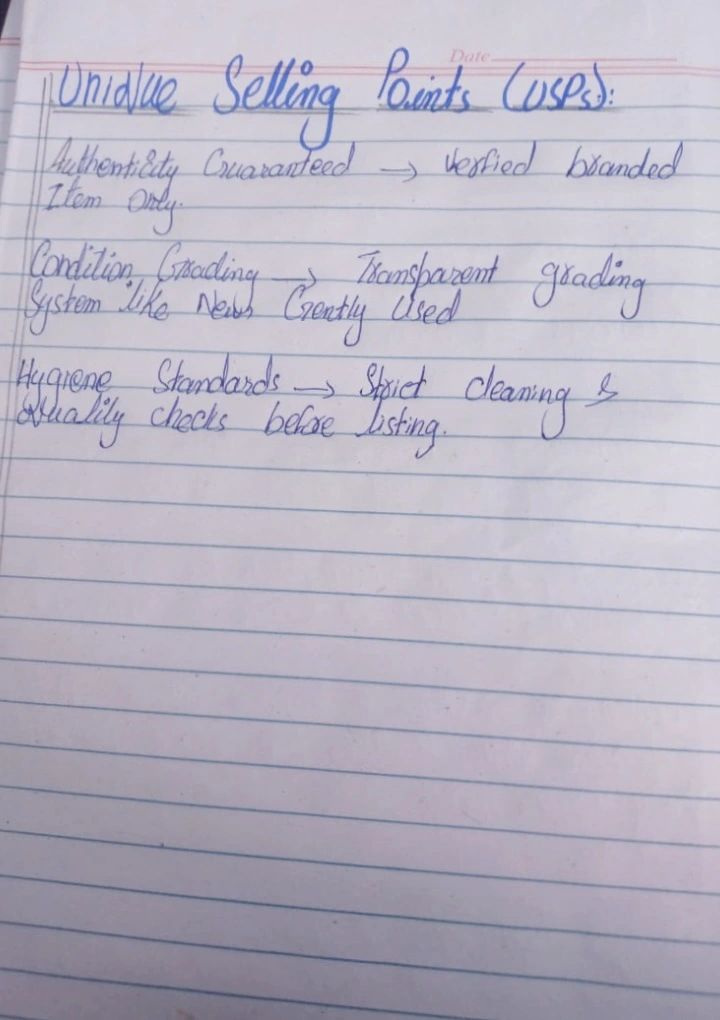 Date
Unique Selling Points (USPs):
Authenticity Guaranteed → Verfied branded
Item Only.
Condition Grading → Transparent grading
System like New, Gently Used
Hygiene Standards → Strict cleaning &
Quality checks before listing.